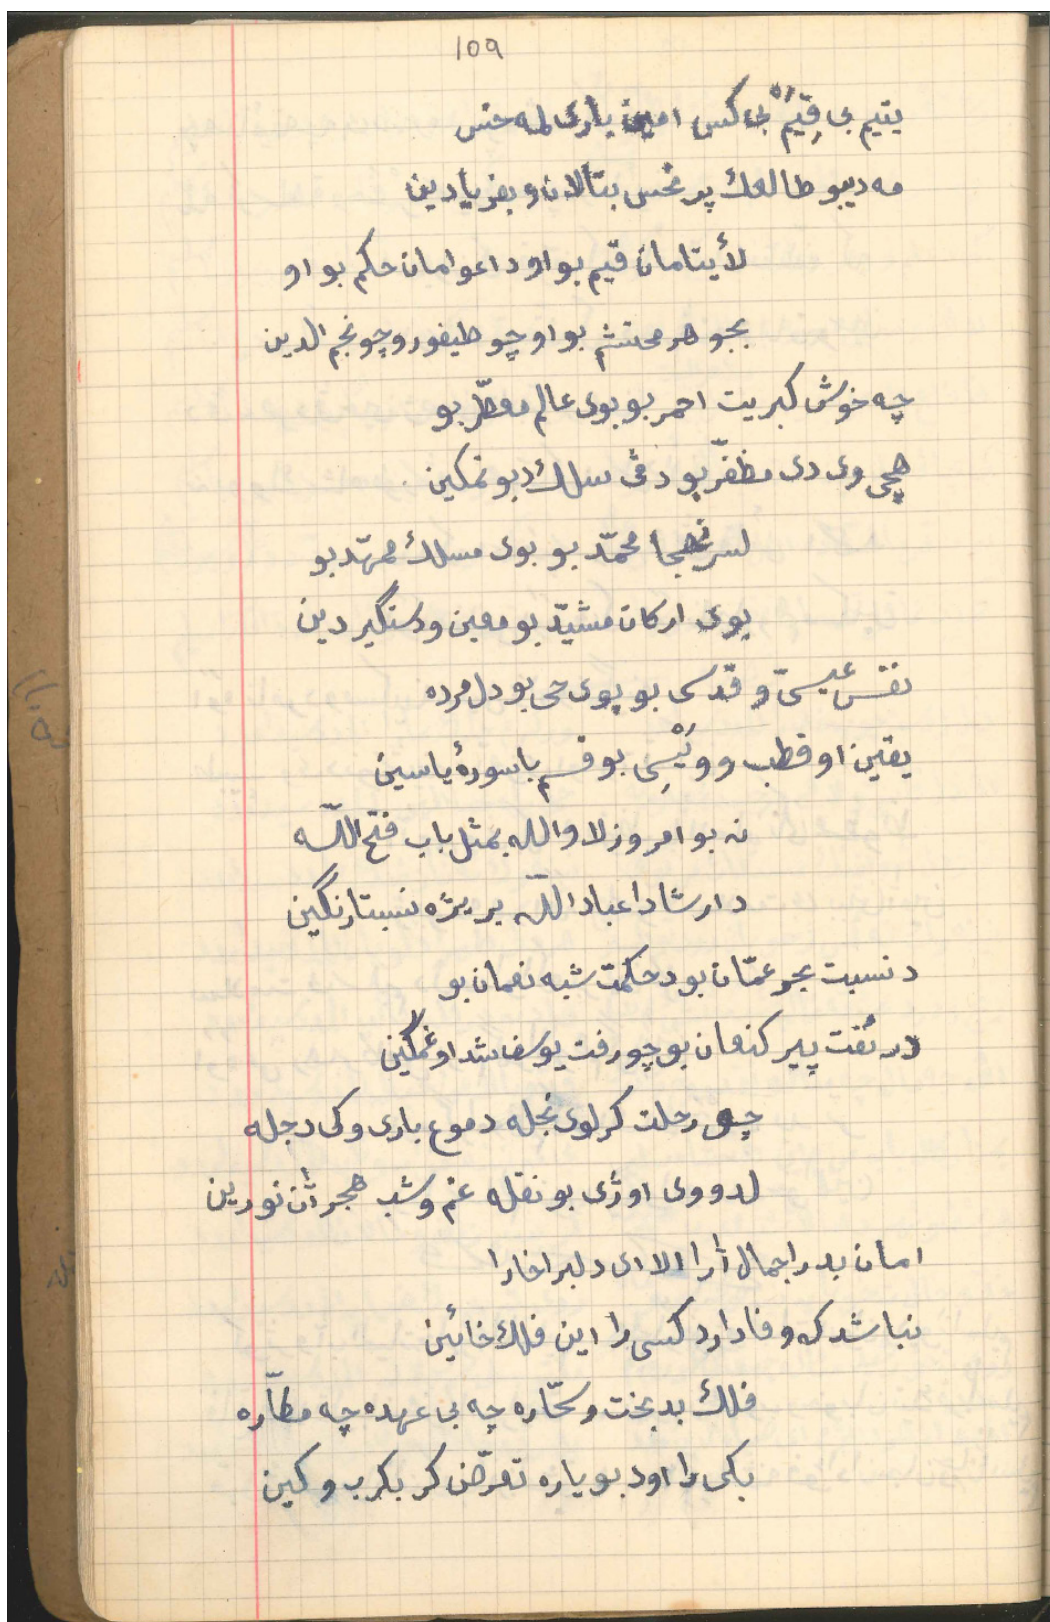 ١٥٩
يتيم بى قِيّمُ بى كس امين يارى لمه حنس
مه ديبو طالعك پر نحس بتالان و بفريادين
لأيتامان قيم بو او داعوامان حكم بو او
بجو هر محتشم بو او چو طيفور و چو نجم الدين
چه خوش كبريت احمر بو بوى عالم معطّر بو
هچى وى دى مظفّر بو دڤى سلك دبو تمكين
لسر نهجا محمّد بو بوى مسلك ممهّد بو
بوى اركان مشيّد بو معين و دستگير دين
نفس عيسىّ و قدسى بو بوى حى بو دل مرده
يقين او قطب و ويْسِى بو قسم با سورهٔ ياسين
نه بو امروز لا والله بمثل باب فتح اللّه
د ارشادا عباد اللّه بريژه نسبتا رنگين
د نسبت بحر عمّان بو د حكمت شبه نعمان بو
در رُفت پير كنعان بو چو رفت يوسف شد او غمگين
چو رحلت كر لوى نجله دموع بارى وكى دجله
لدو وى اوژى بو نقله غم و شب هجر آن نورين
امان بدر اجمال آرا الا اى دلبر اخارا
نباشد كه وفا دارد كسى را اين فلك خائين
فلك بدبخت و سحّاره چه بى عهده چه مطّاره
بكى را او د بو ياره تعرّض كر بكرب و كين